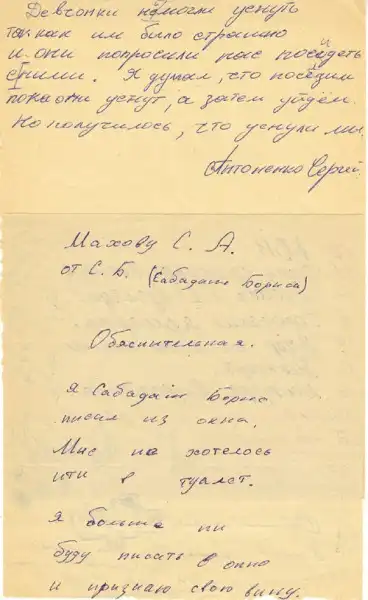 Девчонки не могли уснуть
так как им было страшно
и они попросили нас посидеть
с ними. Я думал, что посидим
пока они уснут, а затем уйдём.
Но получилось, что уснули мы.
Антоненко Сергей
Махову С. А.
от С. Б. (Сабадаш Бориса)
Обяснительная.
Я Сабадаш Борис
писал из окна.
Мне не хотелось
ити в туалет.
Я больше ни
буду писать в окно
и признаю свою вину.